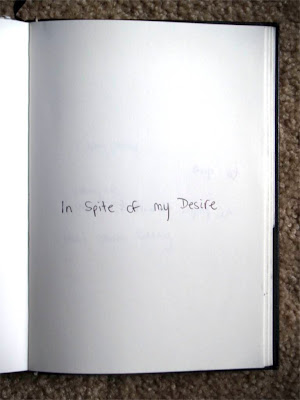 In Spite of my Desire